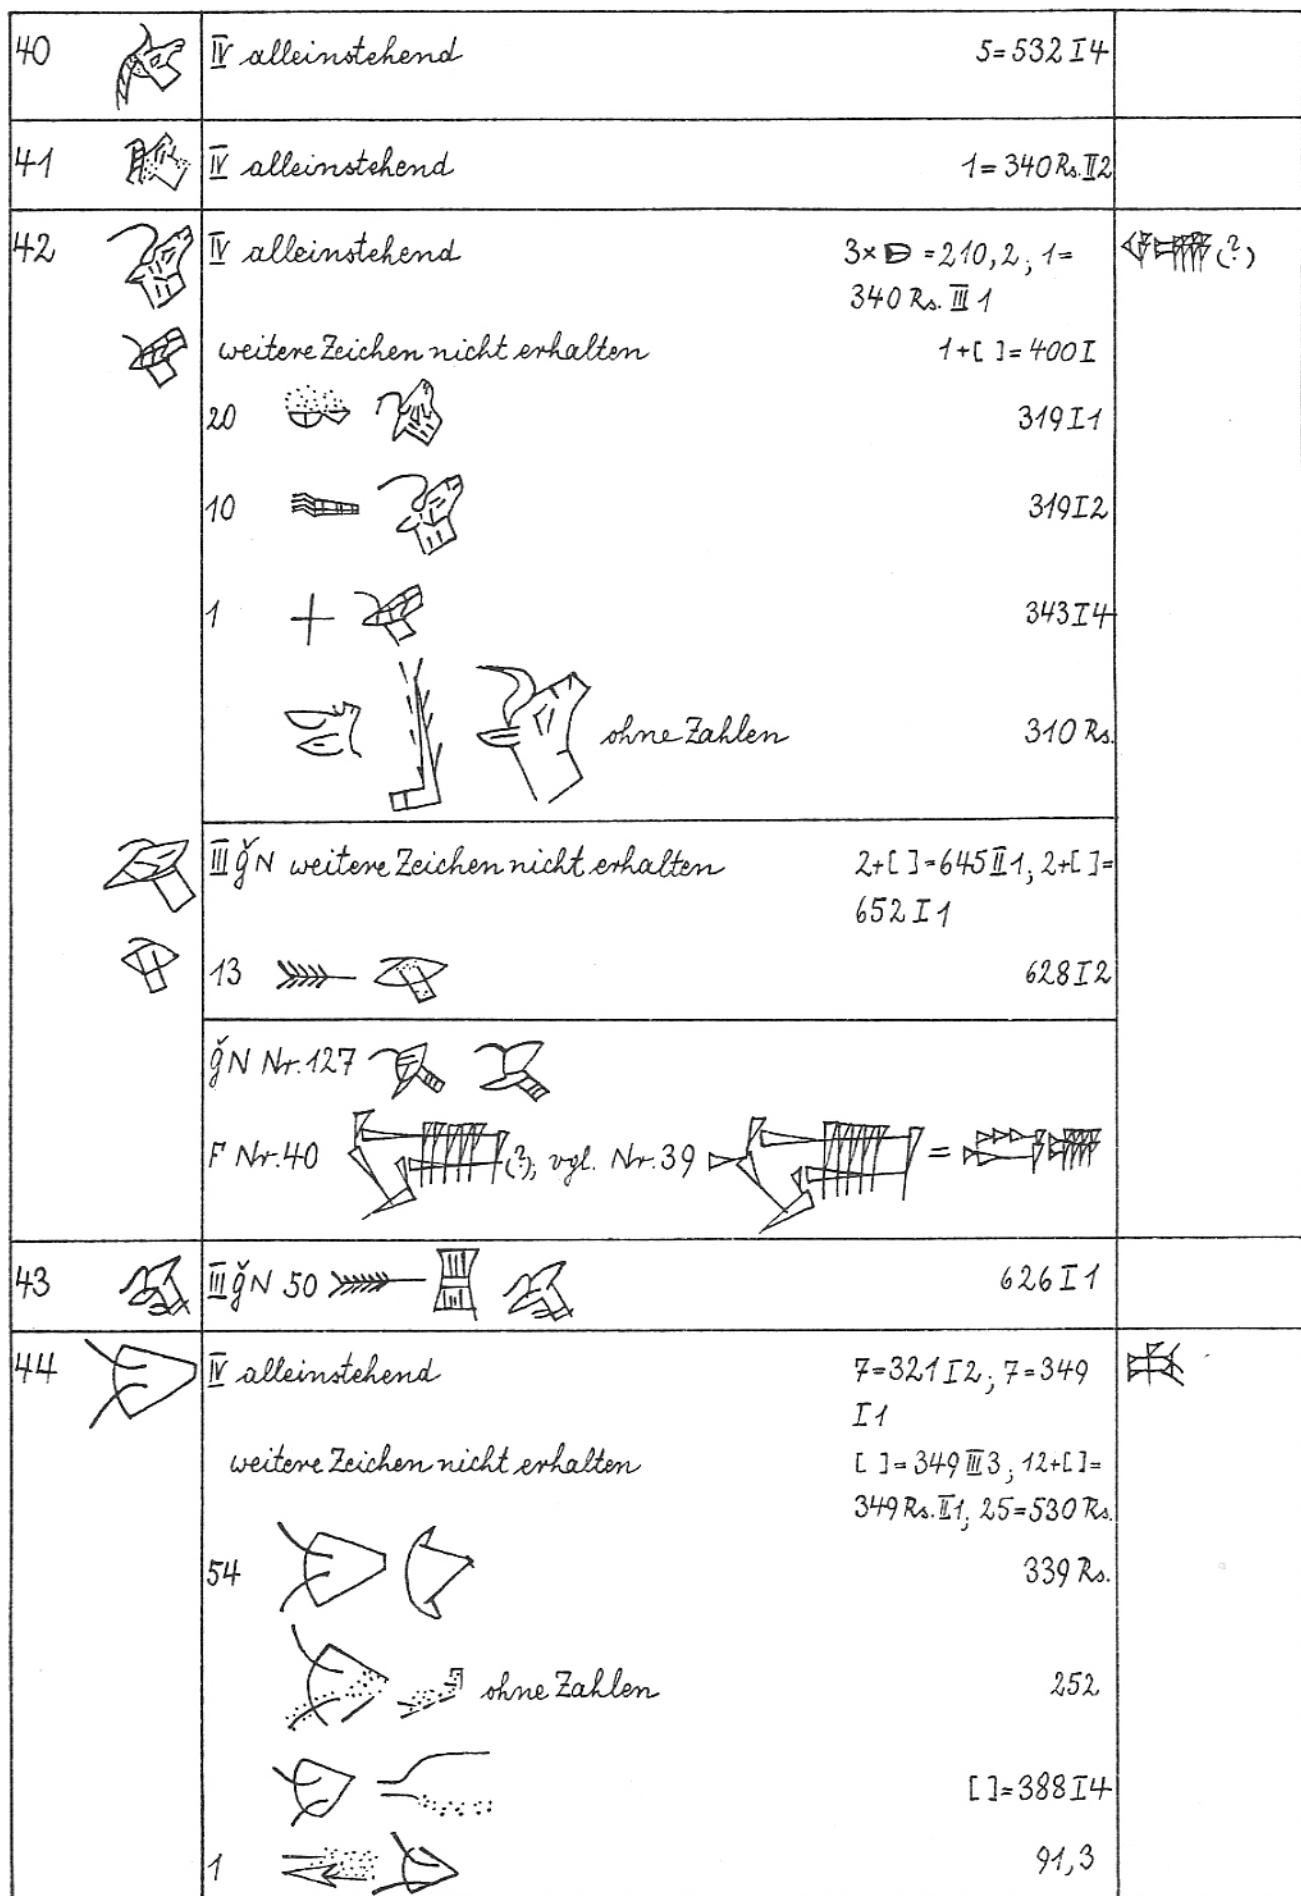 40 IV alleinstehend 5=532 I 4
41 IV alleinstehend 1=340 Rs. II 2
42 IV alleinstehend 3× =210,2; 1=
340 Rs. III 1 (?)
weitere Zeichen nicht erhalten 1+[ ]=400 I
20 319 I 1
10 319 I 2
1 343 I 4
ohne Zahlen 310 Rs.
III ǧN weitere Zeichen nicht erhalten 2+[ ]=645 II 1; 2+[ ]=
652 I 1
13 628 I 2
ǧN Nr. 127
F Nr. 40 (?); vgl. Nr. 39 =
43 III ǧN 50 626 I 1
44 IV alleinstehend 7=321 I 2; 7=349
I 1
weitere Zeichen nicht erhalten [ ]=349 III 3; 12+[ ]=
349 Rs. II 1; 25=530 Rs.
54 339 Rs.
ohne Zahlen 252
[ ]=388 I 4
1 91,3